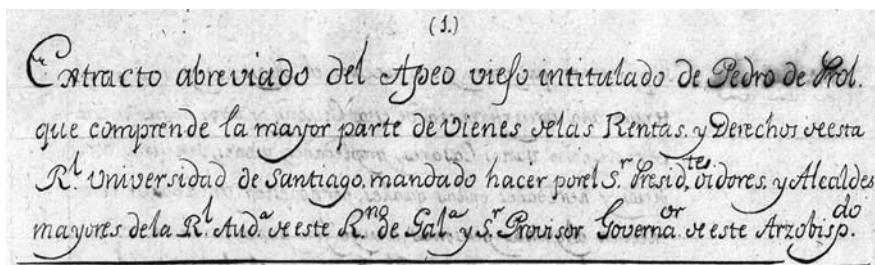 (1.)
Extracto abreviado del Apeo viejo intitulado de Pedro de Prol.
que comprende la mayor parte de Vienes de las Rentas. y Derechos de esta
R.l Universidad de Santiago. mandado hacer por el S.r Presid.tes oidores. y Alcaldes
mayores de la R.l Aud.a de este R.no de Gal.a y S.r Provisor Governa.or de este Arzobisp.do